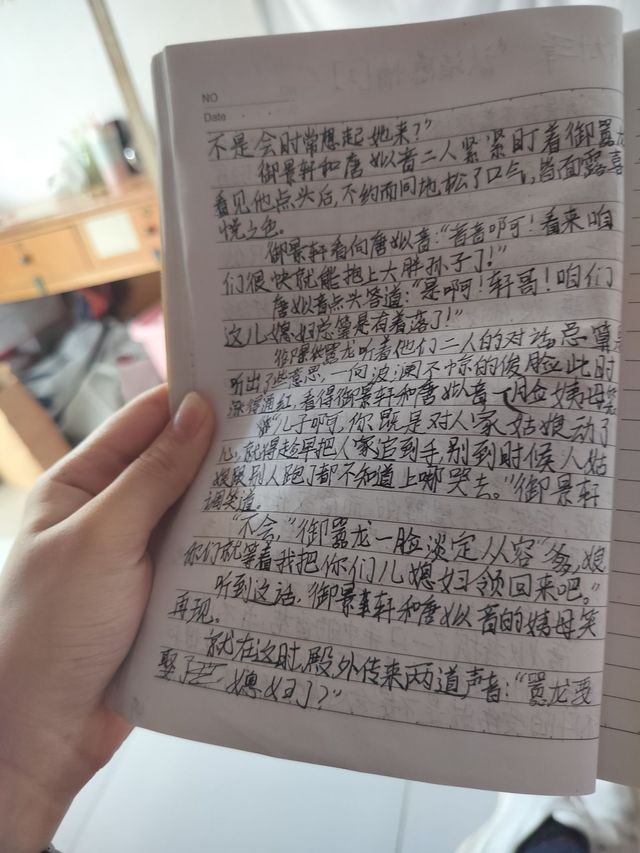 NO
Date
不是会时常想起她来？”
御景轩和唐姒音二人紧紧盯着御嚣龙
看见他点头后，不约而同地松了口气，皆面露喜
悦之色。
御景轩看向唐姒音：“音音啊！看来咱
们很快就能抱上大胖孙子了！”
唐姒音点头答道：“是啊！轩哥！咱们
这儿媳妇总算是有着落了！”
御嚣龙听着他们二人的对话总算是
听出了些意思，一向波澜不惊的俊脸此时
涨得通红，看得御景轩和唐姒音一脸姨母笑
“儿子啊，你既是对人家姑娘动了
心，就得趁早把人家追到手，别到时候人姑
娘跟别人跑了都不知道上哪哭去。”御景轩
调笑道。
“不会，”御嚣龙一脸淡定从容“爹，娘
你们就等着我把你们儿媳妇领回来吧。”
听到这话，御景轩和唐姒音的姨母笑
再现。
就在这时，殿外传来两道声音：“嚣龙要
娶了 媳妇了？”